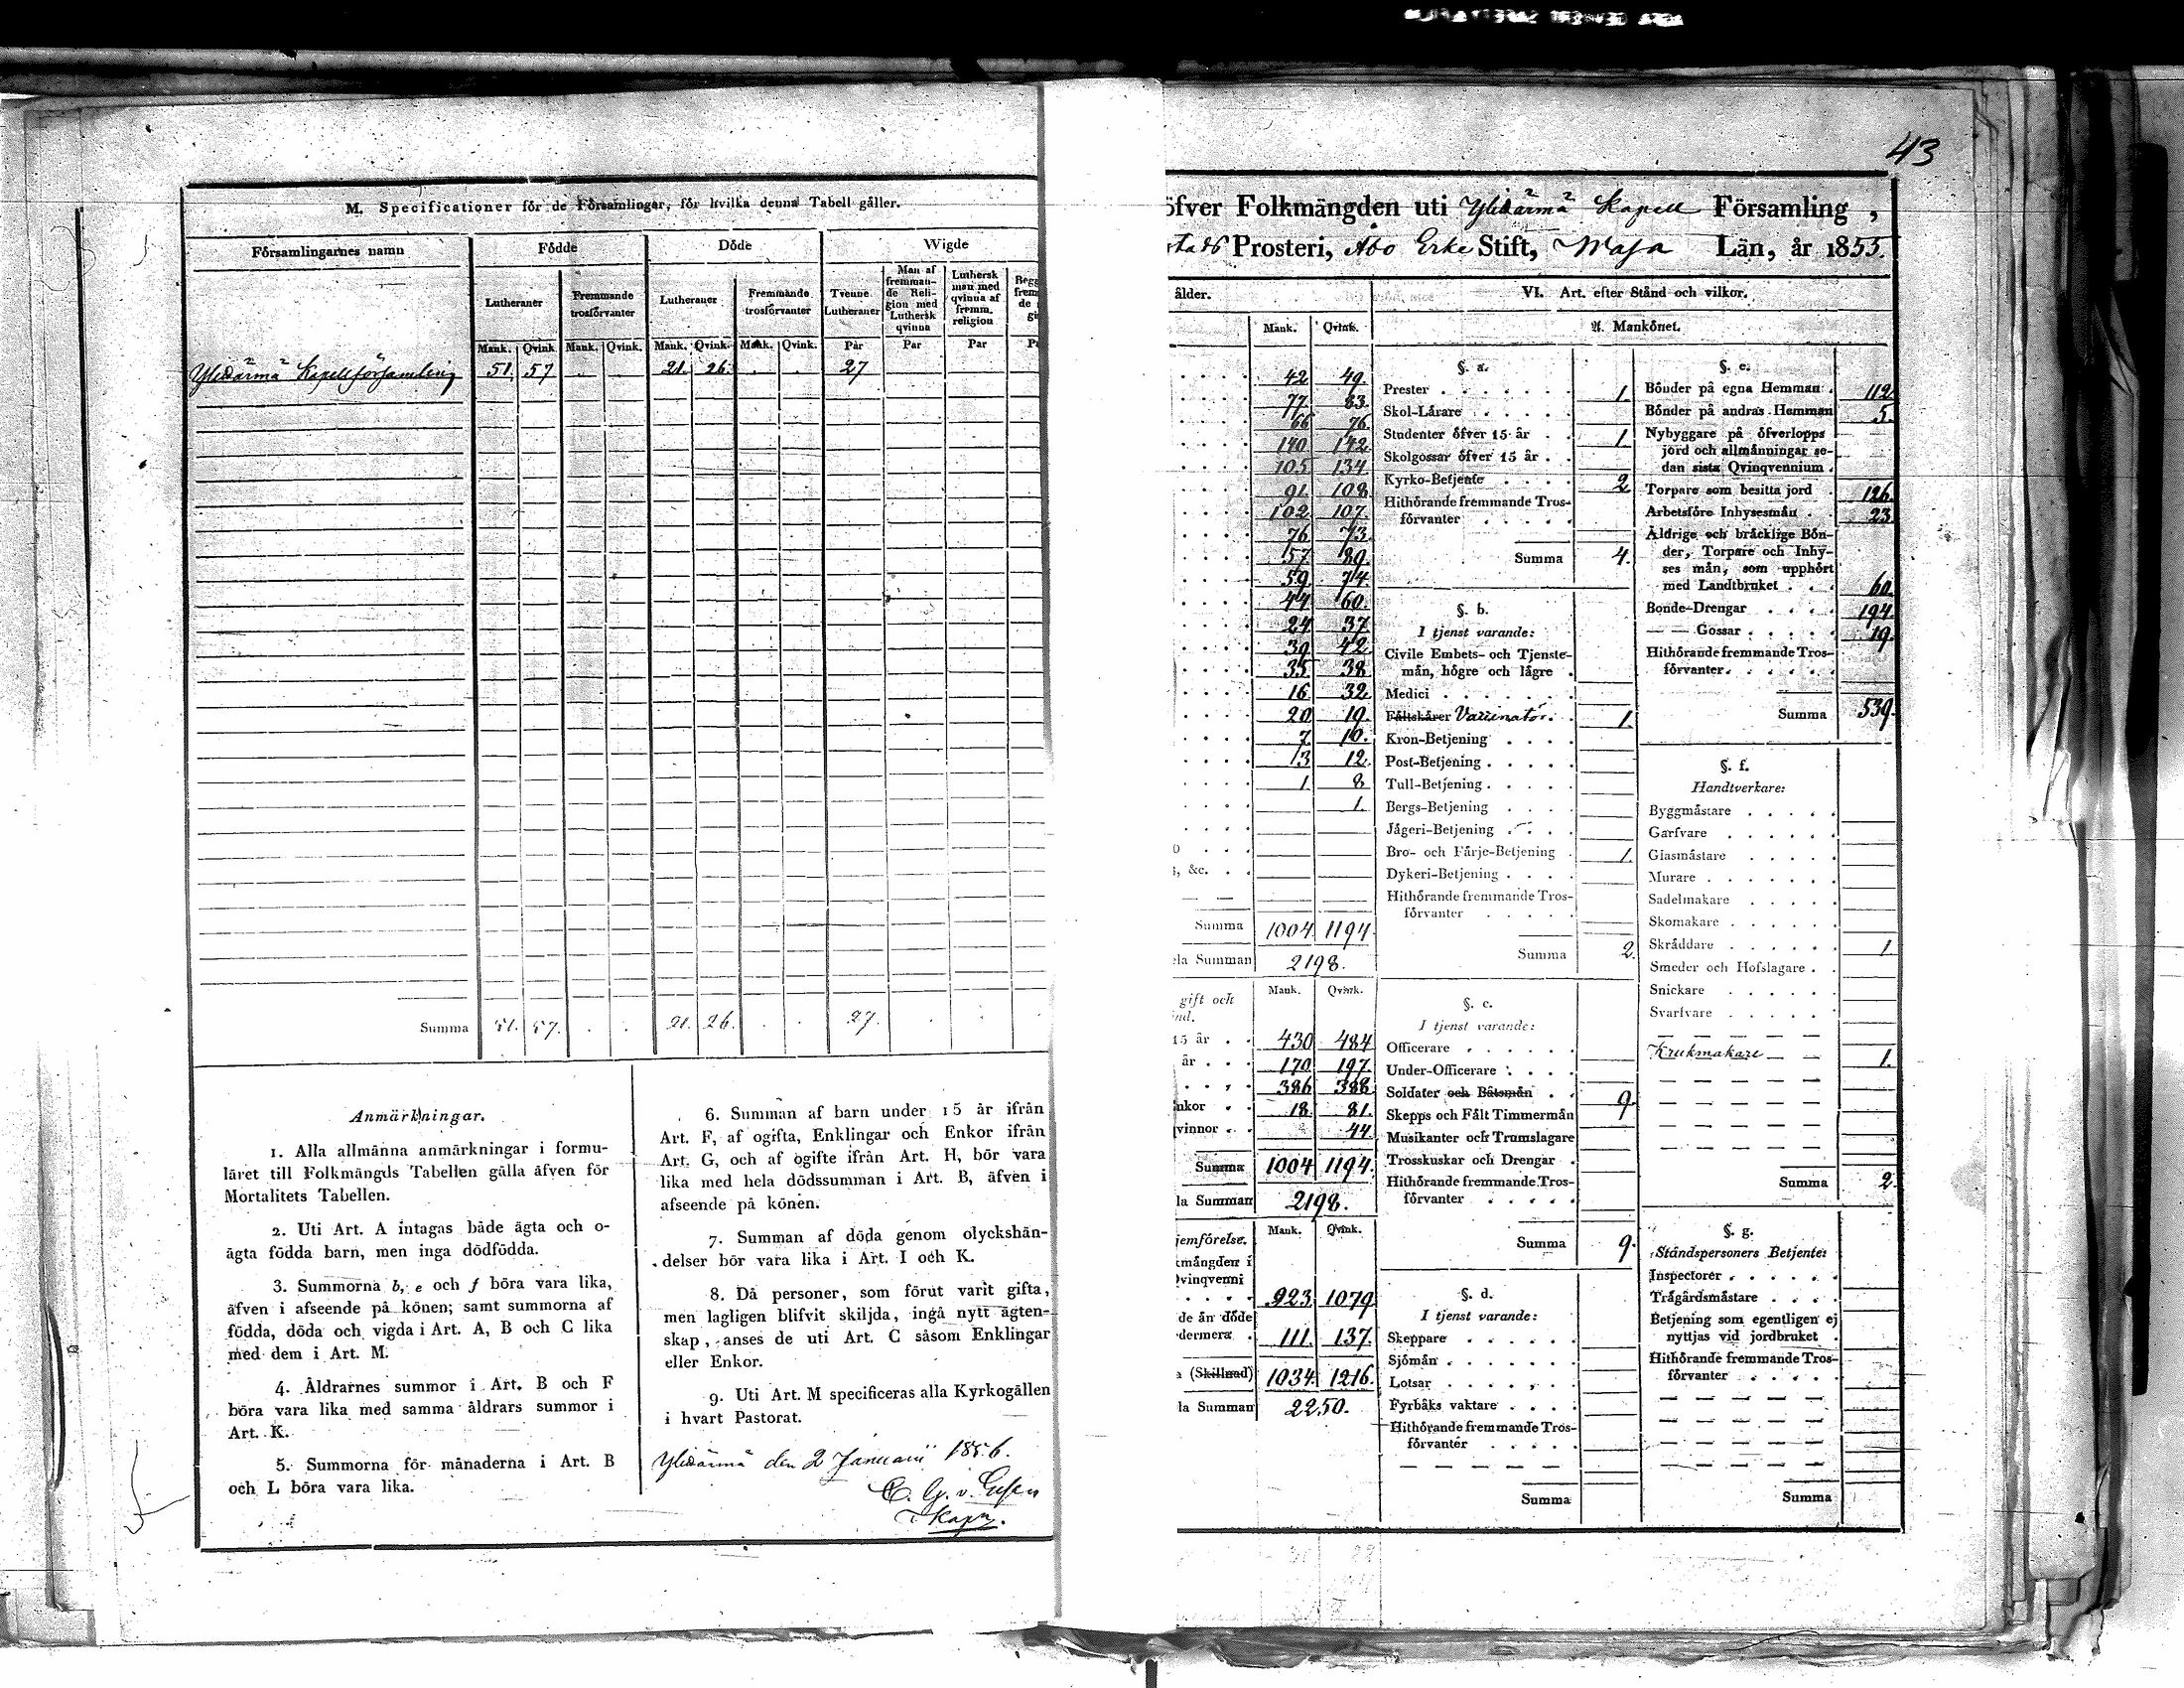 43
M. Specificationer för de Församlingar, för hvilka denna Tabell gäller.
Församlingarnes namn | Födde | Döde | Wigde
Lutheraner | Fremmande trosförvanter | Lutheraner | Fremmande trosförvanter | Tvenne Lutheraner | Man af fremmande Religion med Luthersk qvinna | Luthersk man med qvinna af fremm. religion
Mank. | Qvink. | Mank. | Qvink. | Mank. | Qvink. | Mank. | Qvink. | Par | Par | Par
Ylihärmä Kapellförsamling 51. 57 . . 21. 26. . . 27
Summa 51. 57. . . 21. 26. . . 27.
Anmärkningar.
1. Alla allmänna anmärkningar i formu-
läret till Folkmängds Tabellen gälla äfven för
Mortalitets Tabellen.
2. Uti Art. A intagas både ägta och o-
ägta födda barn, men inga dödfödda.
3. Summorna b, e och f böra vara lika,
äfven i afseende på könen; samt summorna af
födda, döda och vigda i Art. A, B och C lika
med dem i Art. M.
4. Åldrarnes summor i Art. B och F
böra vara lika med samma åldrars summor i
Art. K.
5. Summorna för månaderna i Art. B
och L böra vara lika.
6. Summan af barn under 15 år ifrån
Art. F, af ogifta, Enklingar och Enkor ifrån
Art. G, och af ogifte ifrån Art. H, bör vara
lika med hela dödssumman i Art. B, äfven i
afseende på könen.
7. Summan af döda genom olyckshän-
delser bör vara lika i Art. I och K.
8. Då personer, som förut varit gifta,
men lagligen blifvit skiljda, ingå nytt ägten-
skap, anses de uti Art. C såsom Enklingar
eller Enkor.
9. Uti Art. M specificeras alla Kyrkogällen
i hvart Pastorat.
Ylihärmä den 2 Januarii 1856.
Kapn.
öfver Folkmängden uti Ylihärmä Kapell Församling,
stads Prosteri, Åbo Erke Stift, Wasa Län, år 1855.
ålder.
Mank. Qvink.
42 49.
77. 83.
66 76.
140 142
105 134
91. 108
102. 107.
76 73.
57. 89.
59. 74.
44 60.
24 37
39 42
35. 38
16. 32
20 19.
7. 10.
13. 12.
1. 8
1.
, &c.
Summa 1004 1194.
ela Summan 2198.
gift och
ind.
Mank. Qvink.
15 år 430 484
år 170 197
386 388
nkor 18. 81.
qvinnor 44.
Summa 1004 1194.
la Summan 2198.
jemförelse. Mank. Qvink.
kmängden i
Qvinqvenni
923 1079
de än döde
dermera 111. 137.
(Skillnad) 1034. 1216.
la Summan 2250.
VI. Art. efter Stånd och vilkor.
A. Mankönet.
§. a.
Prester 1.
Skol-Lärare
Studenter öfver 15 år 1.
Skolgossar öfver 15 år
Kyrko-Betjente 2
Hithörande fremmande Tros-
förvanter
Summa 4.
§. b.
I tjenst varande:
Civile Embets- och Tjenste-
män, högre och lägre
Medici
Fältskärer Vaccinatör. 1.
Kron-Betjening
Post-Betjening
Tull-Betjening
Bergs-Betjening
Jägeri-Betjening
Bro- och Färje-Betjening 1.
Dykeri-Betjening
Hithörande fremmande Tros-
förvanter
Summa 2.
§. c.
I tjenst varande:
Officerare
Under-Officerare
Soldater och Båtsmän 9
Skepps och Fält Timmermän
Musikanter och Trumslagare
Trosskuskar och Drengar
Hithörande fremmande Tros-
förvanter
Summa 9.
§. d.
I tjenst varande:
Skeppare
Sjömän
Lotsar
Fyrbåks vaktare
Hithörande fremmande Tros-
förvanter
Summa
§. e.
Bönder på egna Hemman 112
Bönder på andras Hemman 5.
Nybyggare på öfverlopps
jord och allmänningar se-
dan sista Qvinqvennium
Torpare som besitta jord 126.
Arbetsföre Inhysesmän 23
Åldrige och bräcklige Bön-
der, Torpare och Inhy-
ses män, som upphört
med Landtbruket 60.
Bonde-Drengar 194.
— — Gossar 19.
Hithörande fremmande Tros-
förvanter
Summa 539.
§. f.
Handtverkare:
Byggmästare
Garfvare
Glasmästare
Murare
Sadelmakare
Skomakare
Skräddare 1.
Smeder och Hofslagare
Snickare
Svarfvare
Krukmakare 1.
Summa 2.
§. g.
Ståndspersoners Betjente:
Inspectorer
Trägårdsmästare
Betjening som egentligen ej
nyttjas vid jordbruket
Hithörande fremmande Tros-
förvanter
Summa